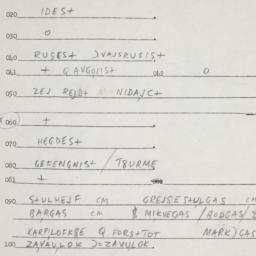 020 IDES+
030 O
040 RUSES+ )VAJSRUSIS+
041 + Q AVGOJIS+ 042 O
050 ZEJ N NIDAJC+
060 +
070 HEGDES+
080 GEFENGNIS+ / TSURME
081 +
090 S+ULHEJF CM GREJSES+ULGAS CM
BARGAS CM $ MIKVEGAS / BODGAS/$
KARPILOKSE Q FORS+TOT MARK)GAS
100 ZAVAULOK )=ZAVULOK.